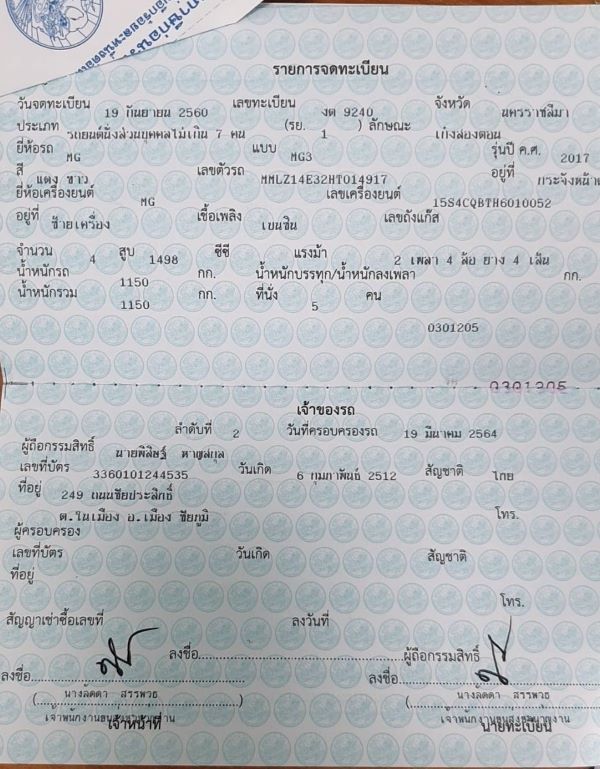 รายการจดทะเบียน
วันจดทะเบียน 19 กันยายน 2560 เลขทะเบียน งต 9240 จังหวัด นครราชสีมา
ประเภท รถยนต์นั่งส่วนบุคคลไม่เกิน 7 คน (รย. 1 ) ลักษณะ เก๋งสองตอน
ยี่ห้อรถ MG แบบ MG3 รุ่นปี ค.ศ. 2017
สี แดง ขาว เลขตัวรถ MMLZ14E32HT014917 อยู่ที่ กระจังหน้า
ยี่ห้อเครื่องยนต์ MG เลขเครื่องยนต์ 15S4CQBTH6010052
อยู่ที่ ซ้ายเครื่อง เชื้อเพลิง เบนซิน เลขถังแก๊ส
จำนวน 4 สูบ 1498 ซีซี แรงม้า 2 เพลา 4 ล้อ ยาง 4 เส้น
น้ำหนักรถ 1150 กก. น้ำหนักบรรทุก/น้ำหนักลงเพลา กก.
น้ำหนักรวม 1150 กก. ที่นั่ง 5 คน
0301205
0301205
เจ้าของรถ
ลำดับที่ 2 วันที่ครอบครองรถ 19 มีนาคม 2564
ผู้ถือกรรมสิทธิ์ นายพิสิษฐ์ หาญสกุล
เลขที่บัตร 3360101244535 วันเกิด 6 กุมภาพันธ์ 2512 สัญชาติ ไทย
ที่อยู่ 249 ถนนชัยประสิทธิ์
ต.ในเมือง อ.เมือง ชัยภูมิ โทร.
ผู้ครอบครอง
เลขที่บัตร วันเกิด สัญชาติ
ที่อยู่
โทร.
สัญญาเช่าซื้อเลขที่ ลงวันที่
ลงชื่อ ผู้ถือกรรมสิทธิ์
ลงชื่อ ลงชื่อ
(นางลัดดา สรรพวธ) (นางลัดดา สรรพวธ)
เจ้าหน้าที่ นายทะเบียน